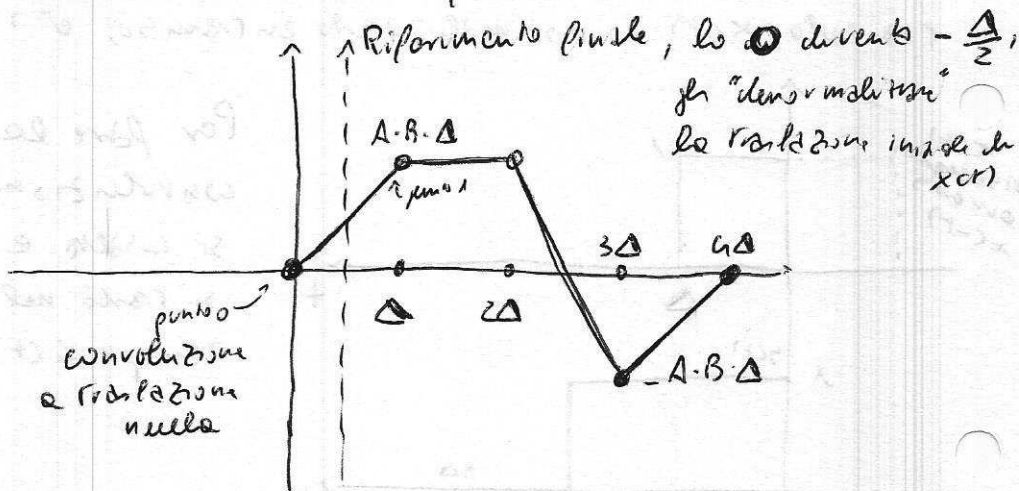 Riferimento finale, lo 0 diventa - Δ/2,
"denormalizzare"
la traslazione iniziale di
x(t)
A·B·Δ
punto 1
3Δ
4Δ
Δ
2Δ
punto 0
convoluzione
a traslazione
nulla
-A·B·Δ